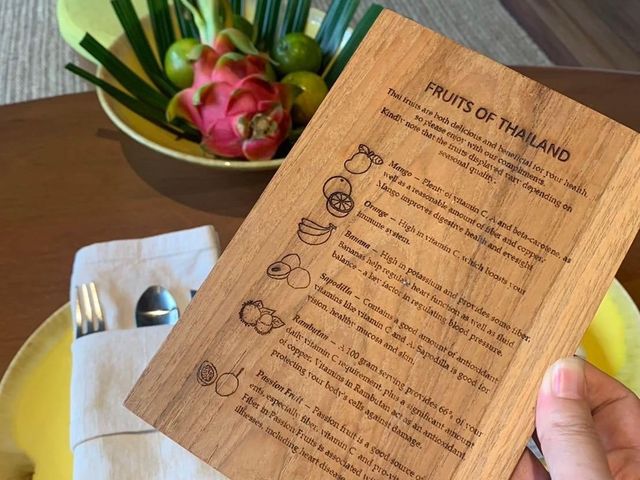 FRUITS OF THAILAND
Thai fruits are both delicious and beneficial for your health,
so please enjoy with our compliments.
Kindly note that the fruits displayed vary depending on
seasonal quality.
Mango – Plenty of vitamin C, A and beta-carotene, as
well as a reasonable amount of fiber and copper.
Mango improves digestive health and eyesight
Orange – High in vitamin C, which boosts your
immune system.
Banana – High in potassium and provides some fiber.
Bananas help regulate heart function as well as fluid
balance – a key factor in regulating blood pressure.
Sapodilla – Contains a good amount of antioxidant
vitamins like vitamin C and A. Sapodilla is good for
vision, healthy mucosa and skin.
Rambutan – A 100 gram serving provides 66% of your
daily vitamin C requirement, plus a significant amount
of copper. Vitamins in Rambutan act as an antioxidant
protecting your body's cells against damage.
Passion Fruit – Passion fruit is a good source of
especially fiber, vitamin C and pro-vitamin
Fiber in Passion Fruits is associated wi
illnesses, including heart disease